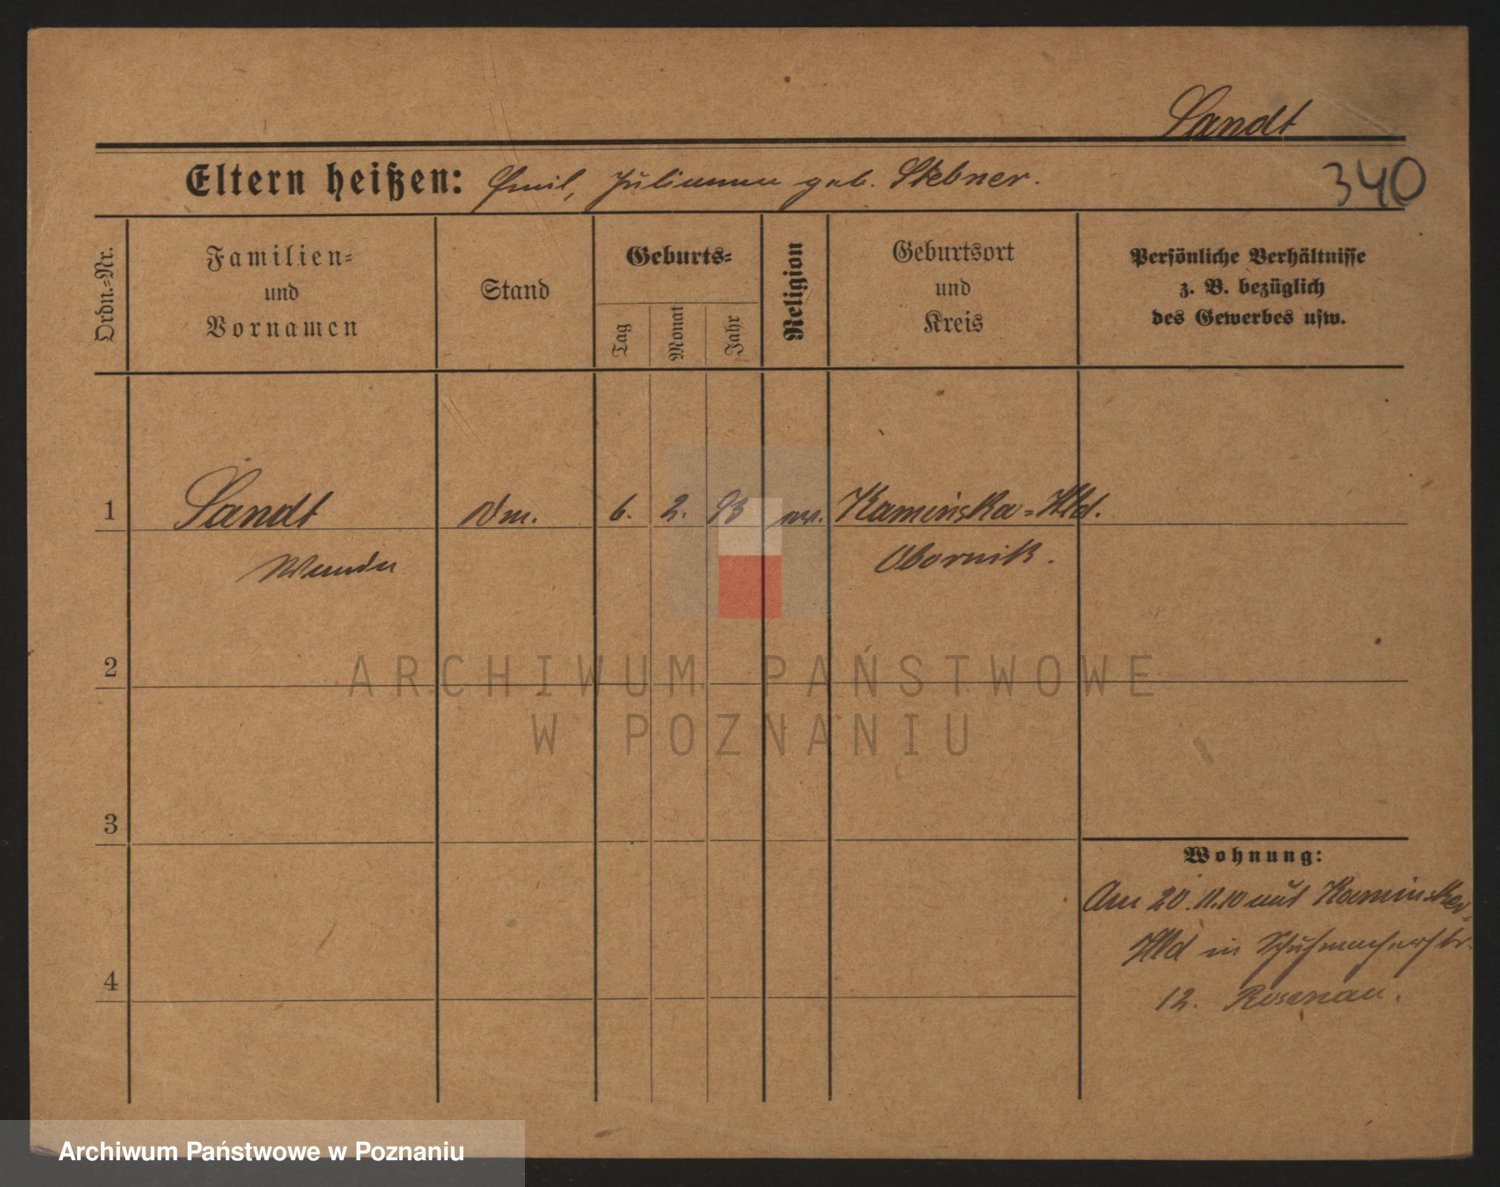 Sandt
Eltern heißen: Emil, Julianna geb. Stebner.
340
Ordn.=Nr.
Familien=
und
Vornamen
Stand
Geburts=
Tag
Monat
Jahr
Religion
Geburtsort
und
Kreis
Persönliche Verhältnisse
z. B. bezüglich
des Gewerbes usw.
1 Sandt 6. 2. 93 Kaminska=Hld.
Wanda Obornik.
2
ARCHIWUM PAŃSTWOWE
W POZNANIU
3
Wohnung:
Am 20.11.10 aus Kaminsker-
Hld in Schuhmacherstr.
12. Rosenau.
4
Archiwum Państwowe w Poznaniu